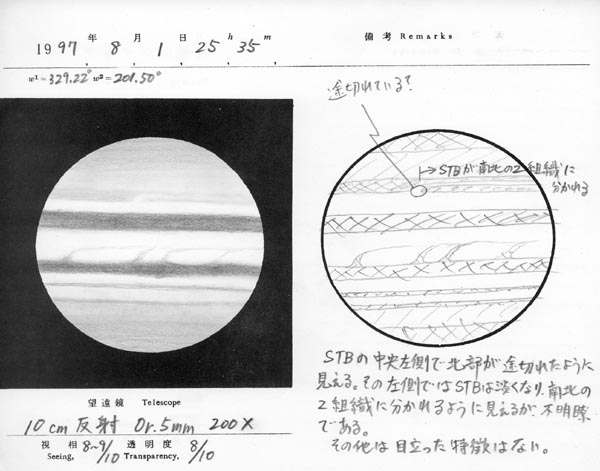 年 月 日 h m
1997, 8, 1, 25, 35,
備考 Remarks
w¹=329.22° w²=201.50°
途切れている?
→STBが南北の2組織に
分かれる
STBの中央左側で北部が途切れたように
見える。その左側ではSTBは淡くなり、南北の
2組織に分かれるように見えるが、不明瞭
である。
その他は目立った特徴はない。
望遠鏡 Telescope
10cm 反射 Or.5mm 200X
視相 8~9/10 透明度 8/10
Seeing, Transparency,